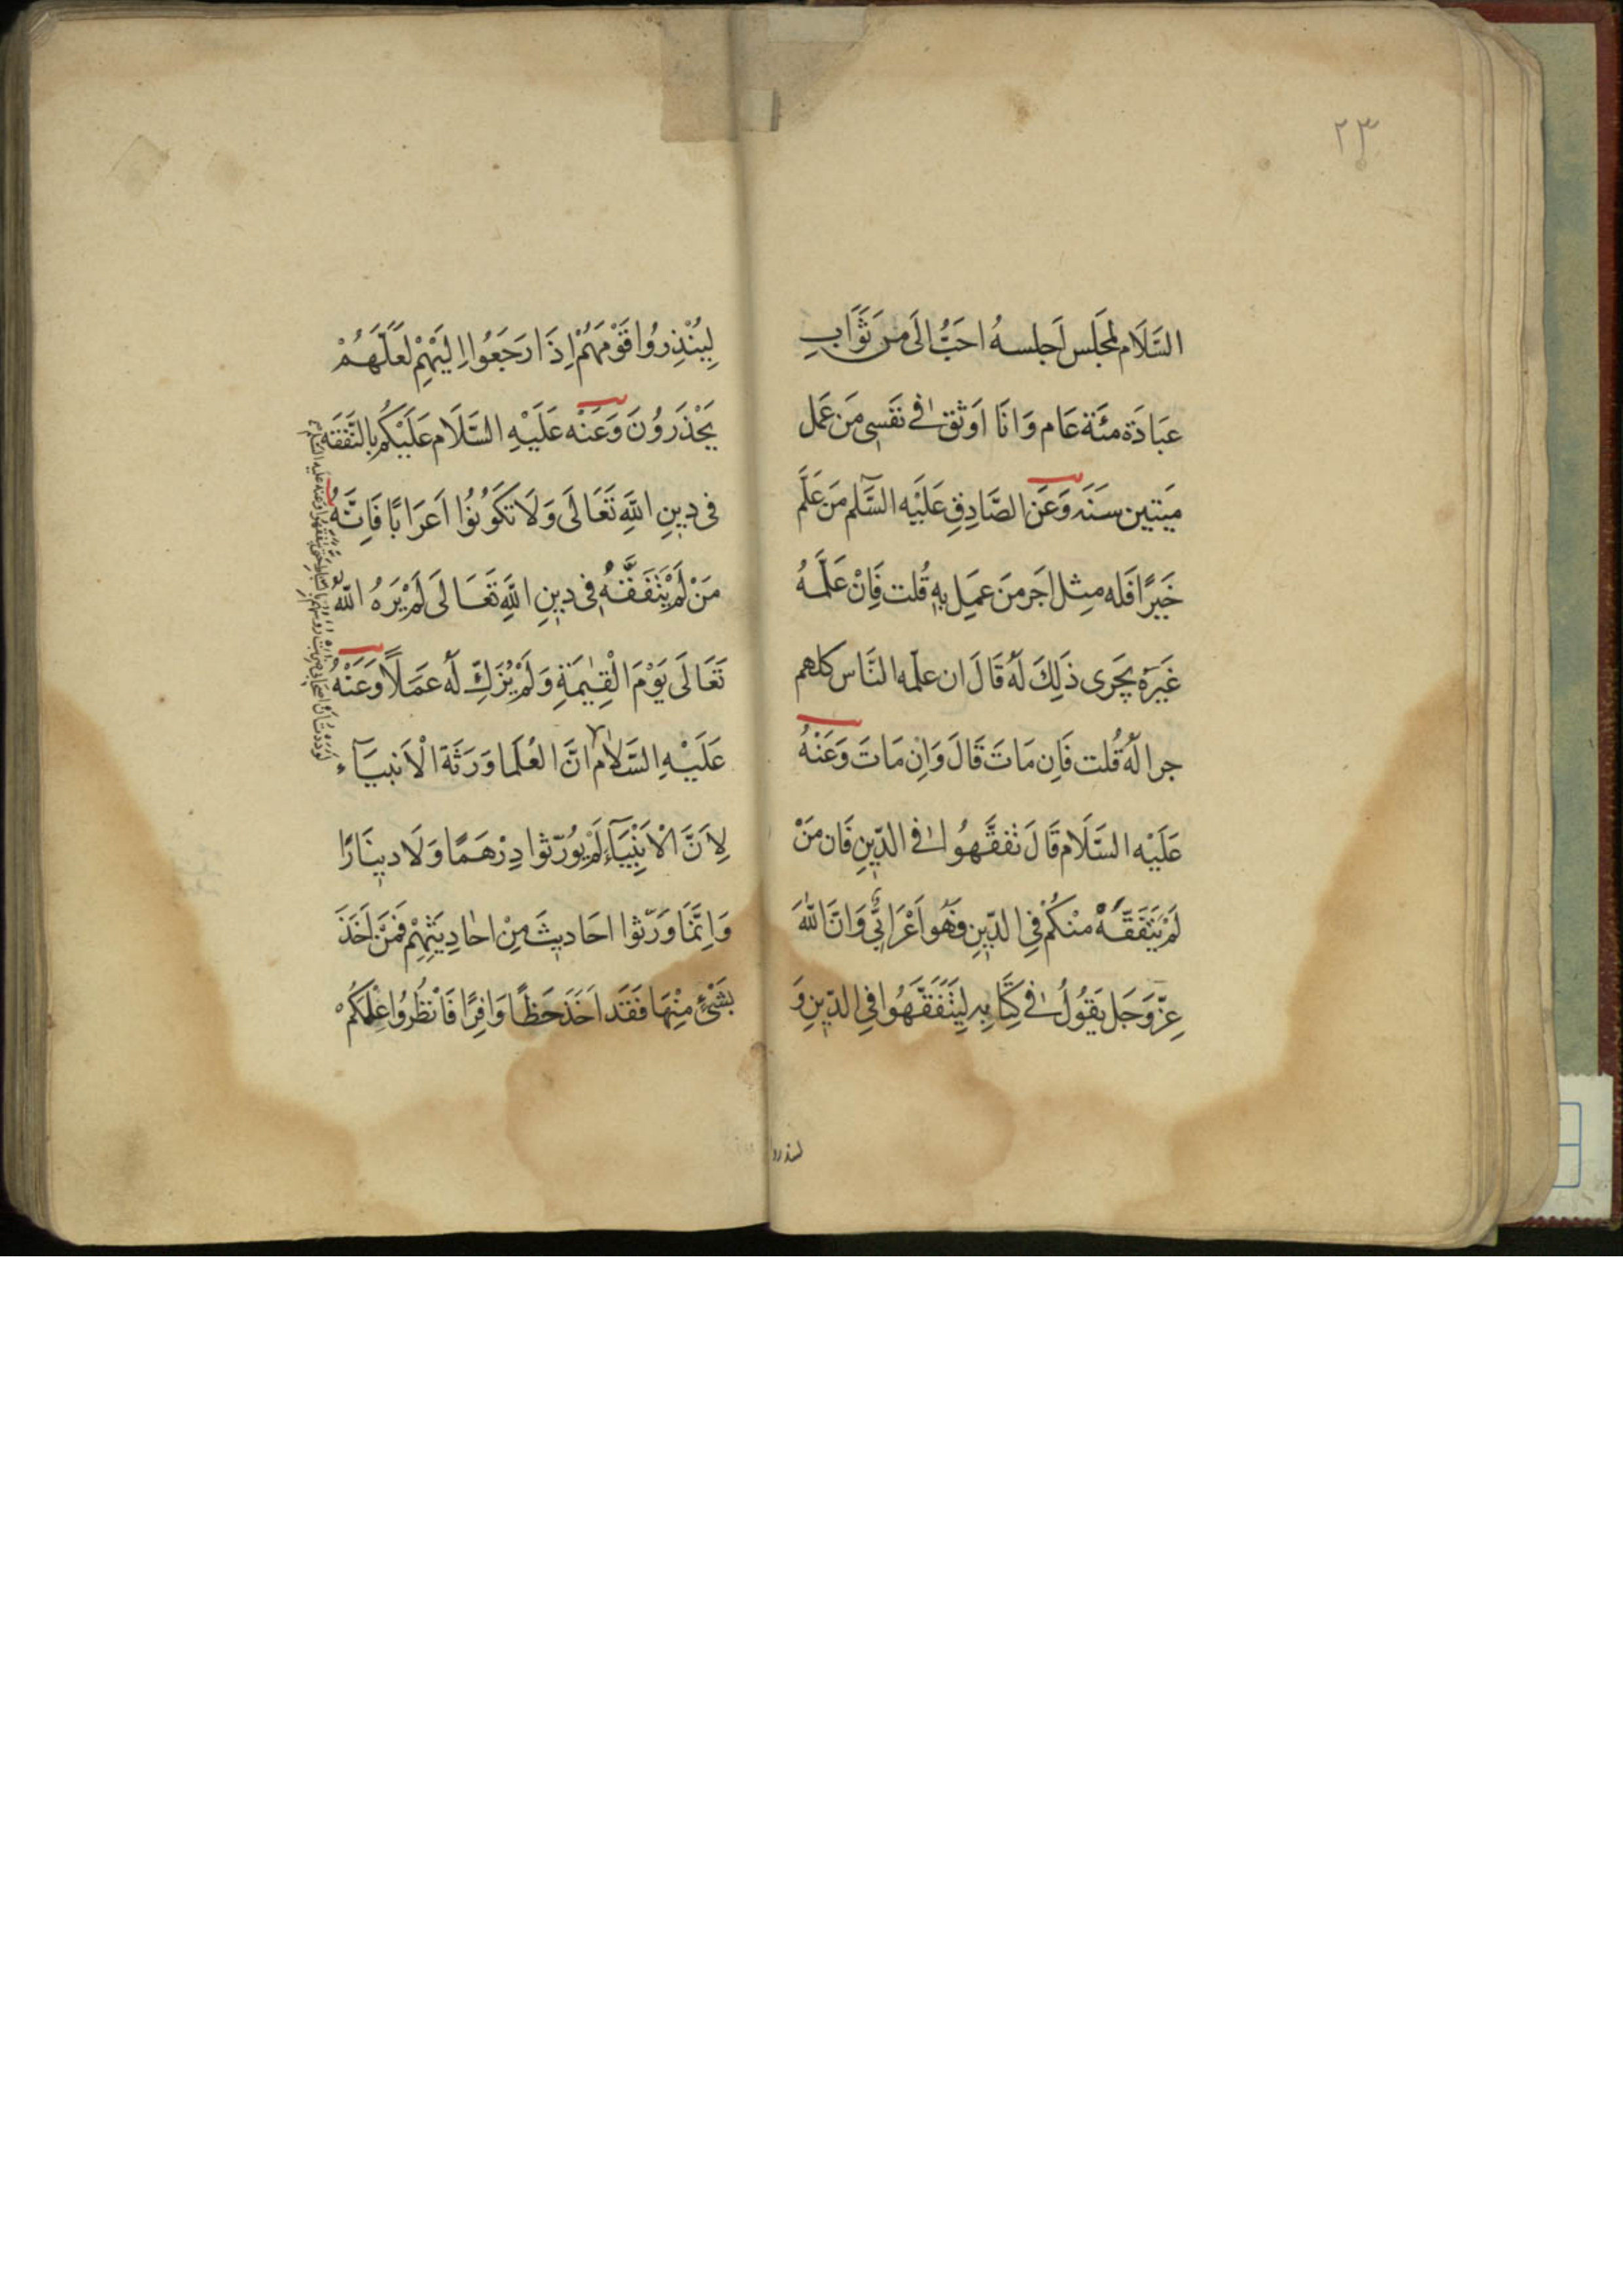 ٢٣
السَّلَام لمَجَلس اَجلسهُ احَبُّ الَى مِنَ ثَوَابِ
عبَادَة مئَة عَام وَانَا اوَثق فے نَفَسِى مَن عَمل
ميَتين سَنَه وَعَن الصَّادِقِ عَلَيَه السَّلم مَن عَلَّم
خَيَرًا فَله مثِل اجَر مَن عَمِل بهِ قُلت فَاِنْ عَلَّمَهُ
غَيَرَه يجَرى ذَلِكَ لَهُ قَالَ ان علمَه النَّاس كلهم
جرا لَهُ قُلت فَاِن مَاتَ قَالَ وَاِن مَاتَ وَعَنْهُ
عَلَيْهِ السَّلَام قَالَ تفقَّهوُا فے الدّيِنِ فَان مَنْ
لَمْ يَتَفَقَّهْ منْكُمْ فِى الدّيِنِ فهَُو اَعْرَابىٌّ وَانَ اللهَ
عزّ وَجَل يَقوُلُ فے كِتَابِه لِيَتَفَقَّهَوُا فِى الدّيِنِ وَ
لينذروا
لِيُنْذِروُا قَوْمَهُمْ اِذَا رَجَعُوا اِلَيْهِمْ لَعَلَّهَُمْ
يَحْذَروُنَ وَعَنْه عَلَيْهِ السَّلَام عَلَيْكُم بِالتَّفَقه
فى ديِنِ اللهِ تَعَالَى وَلَا تَكَوُنوُا اَعرَابًا فَاِنَّهُ
مَنْ لَمْ يَتَفَقَّهْ فى ديِنِ اللهِ تَعَالَى لَمْ يَرَهُ اللّٰه
تَعَالَى يَوْمَ الْقِيٰمَةِ وَلَمْ يُزَكِّ لَهُ عمَلاً وَعَنْهُ
عَلَيْهِ السَّلاٰم انَّ العُلَمَا وَرَثَة الْاَنبيَآء
لِاَنَّ الْاَنْبِيَآءَ لَمْ يُوَرّثوا دِرْهَمًا وَلَا ديِنَارًا
وَاِنَّمَا وَرّثوا احَاديِثَ مِنْ احٰادِيَثِهِمْ فَمَنَ اَخَذَ
بشَىْءٍ مِنْهَا فَقَد اَخَذَ حَظًا وَافِرًا فَانْظُروُا عِلْمَكُم
وعنه عليه السلام
لوددت ان اصحابى ضربت رؤسهم بالسياط حتى يتفقهوا